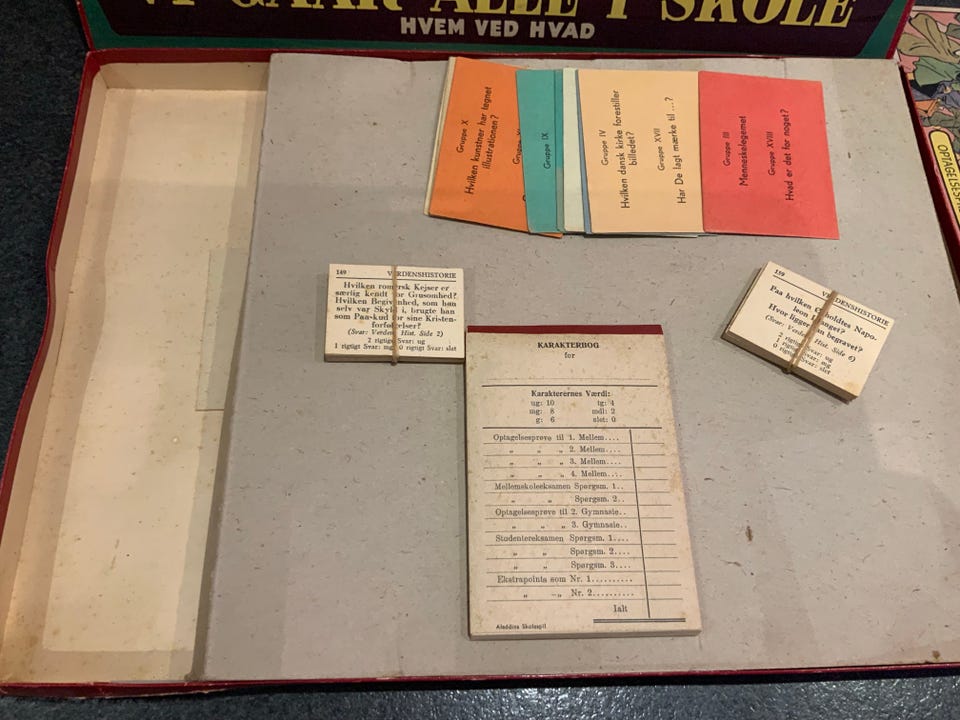 VI GAAR ALLE I SKOLE
HVEM VED HVAD
Gruppe X
Hvilken kunstner har tegnet
illustrationen?
Gruppe IX
Gruppe IV
Hvilken dansk kirke forestiller
billedet?
Gruppe XVII
Har De lagt mærke til ...?
Gruppe III
Menneskelegemet
Gruppe XVIII
Hvad er det for noget?
149 VERDENSHISTORIE
Hvilken romersk Kejser er
særlig kendt for Grusomhed?
Hvilken Begivenhed, som han
selv var Skyld i, brugte han
som Paaskud for sine Kristen-
forfølgelser?
(Svar: Verdens Hist. Side 2)
2 rigtige Svar: ug
1 rigtigt Svar: mg 0 rigtigt Svar: slet
159 VERDENSHISTORIE
Paa hvilken Ø holdtes Napo-
leon fanget?
Hvor ligger han begravet?
(Svar: Verdens Hist. Side 6)
2 rigtige Svar: ug
1 rigtigt Svar: mg
0 rigtigt Svar: slet
KARAKTERBOG
for
Karakterernes Værdi:
ug: 10 tg: 4
mg: 8 mdl: 2
g: 6 slet: 0
Optagelsesprøve til 1. Mellem....
„ „ „ 2. Mellem....
„ „ „ 3. Mellem....
„ „ „ 4. Mellem....
Mellemskoleeksamen Spørgsm. 1..
„ „ Spørgsm. 2..
Optagelsesprøve til 2. Gymnasie..
„ „ „ 3. Gymnasie..
Studentereksamen Spørgsm. 1....
„ „ Spørgsm. 2....
„ „ Spørgsm. 3....
Ekstrapoints som Nr. 1..........
„ –„ Nr. 2..........
Ialt
Aladdins Skolespil